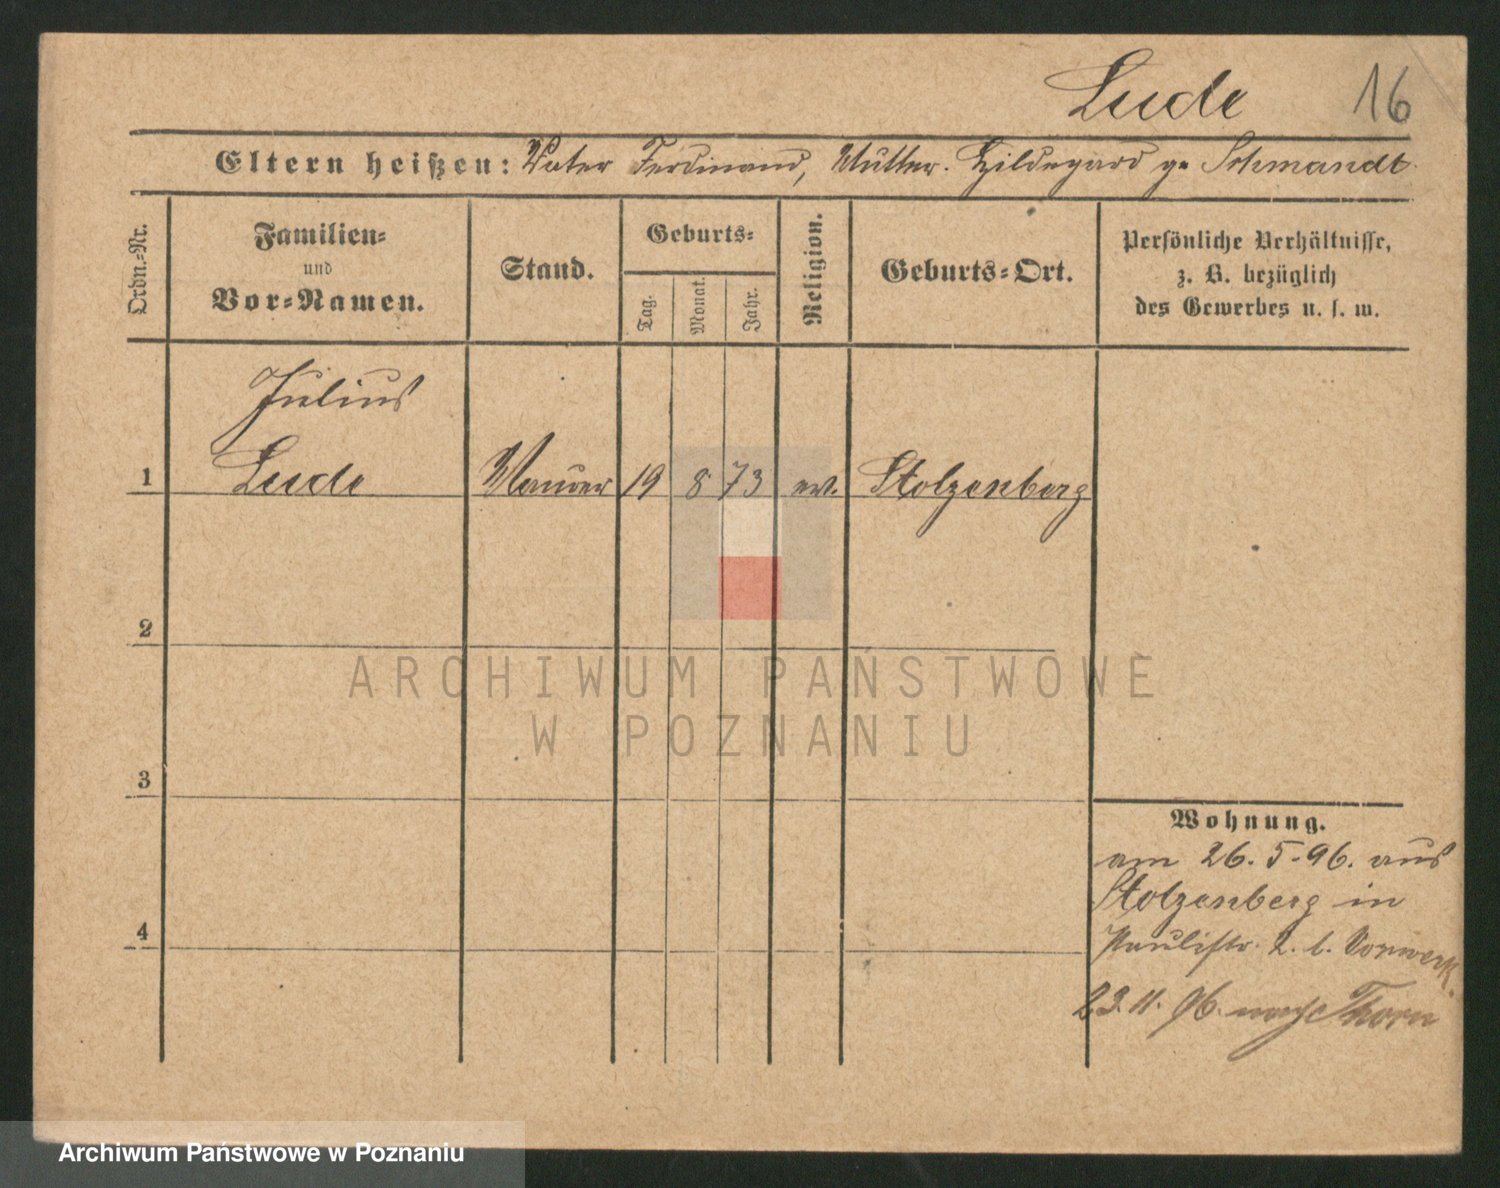 Lude 16
Eltern heißen: Vater Ferdinand, Mutter. Hildegard g. Schmandt
Ordn.-Nr.
Familien-
und
Vor-Namen.
Stand.
Geburts-
Tag.
Monat.
Jahr.
Religion.
Geburts-Ort.
Persönliche Verhältnisse,
z. B. bezüglich
des Gewerbes u. s. w.
Julius
1 Lude Maurer 19 8 73 ev. Stolzenberg
2
3
4
Wohnung.
am 26. 5. 96. aus
Stolzenberg in
Paulistr. 2. b. Vorwerk.
23. 11. 96. nach Thorn
ARCHIWUM PAŃSTWOWE
W POZNANIU
Archiwum Państwowe w Poznaniu